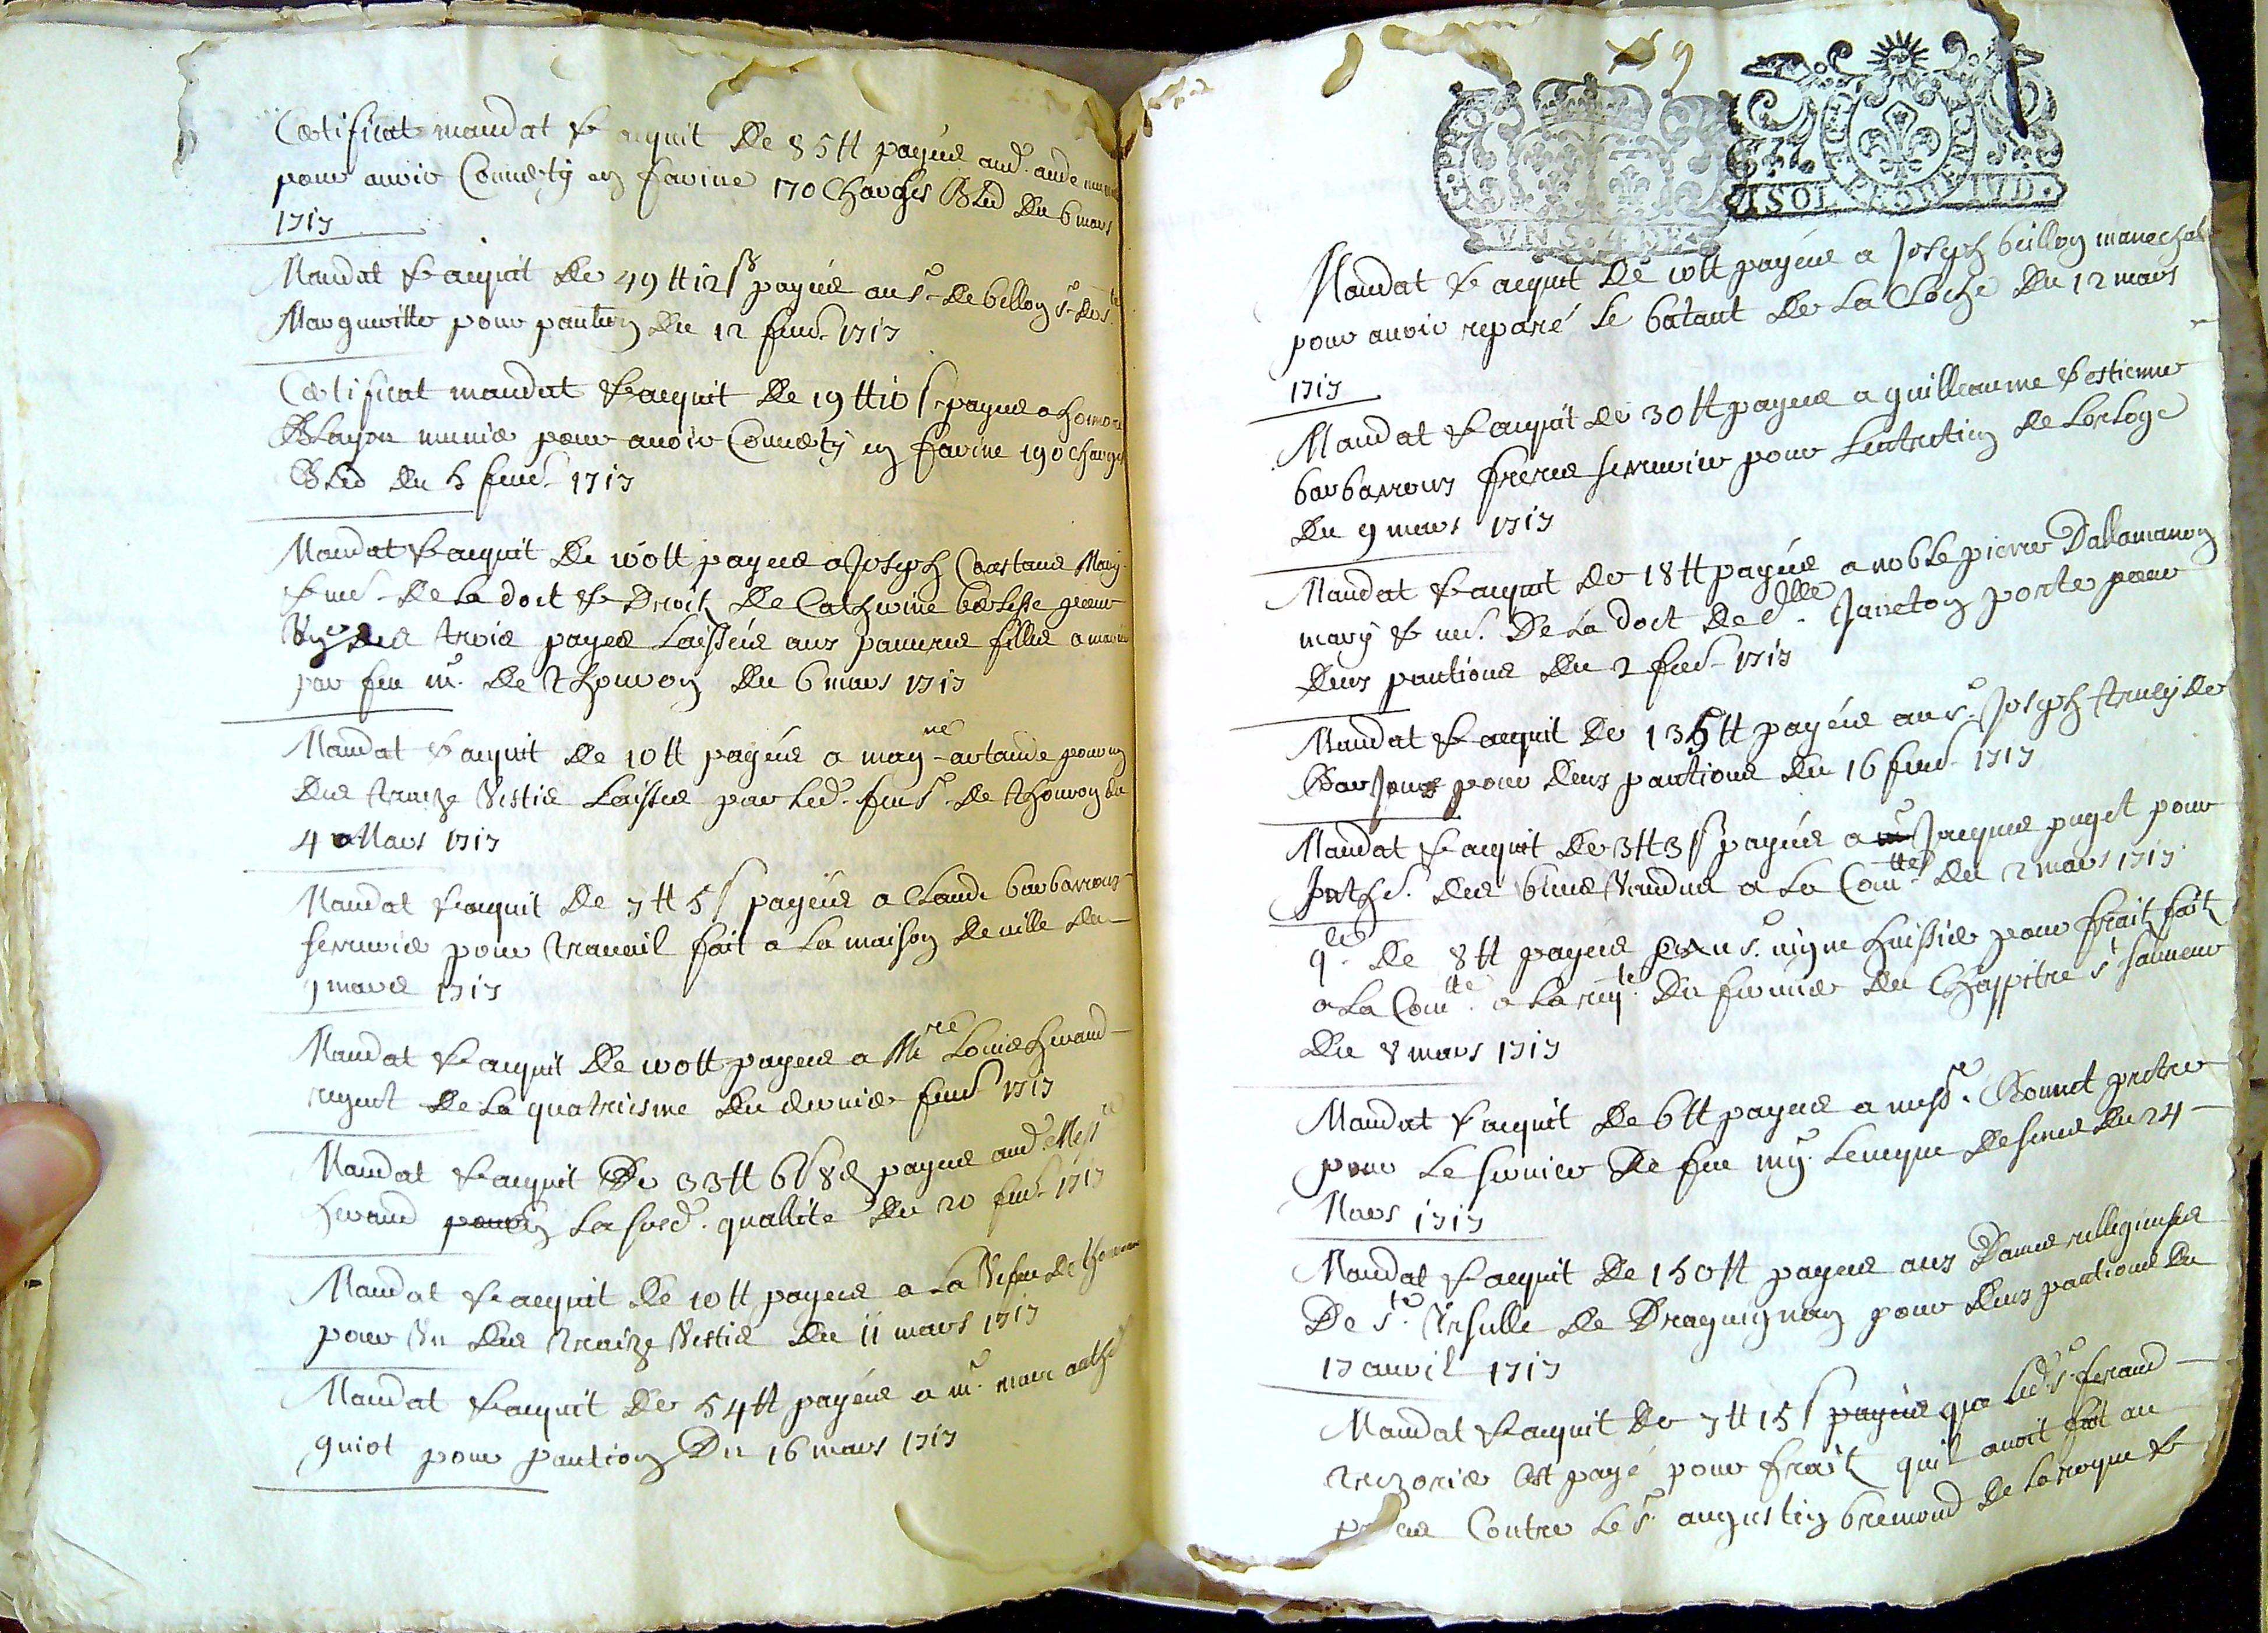 Certificat mandat & acquit De 85 tt payées aud. aude
pour avoir Converty en farine 170 Charges Bled Du 6 mars
1717
Mandat & acquit De 49 tt 12 s payées au sr. De billon sr. De ste
Margueritte pour pantion Du 12 fevr. 1717
Certificat mandat & acquit De 19 tt 10 s payées a honoré
Blayon munier pour avoir Converty en farine 190 charges
Bled Du 5 fevr. 1717
Mandat & acquit De 100 tt payées a Joseph Coastans Mary
& De la dot & Droits De Catherine pour
Une des trois payes Laissées aux pauvres filles a marier
par feu mr. De Thouron Du 6 mars 1717
Mandat & acquit De 10 tt payées a magne artaude pour un
Des traize Vestis Laisses par Led. feu sr. De Thouron du
4 Mars 1717
Mandat & acquit De 7 tt 5 s payées a Claude barbarroux
serrurier pour travail fait a La maison De ville Du
9 mars 1717
Mandat & acquit De 100 tt payées a Mre Louis heraud
regent De La quatriesme Du dernier fevr. 1717
Mandat & acquit De 33 tt 6 s 8 d payées aud. Messre
heraud en La susd. quallité Du 20 fevr. 1717
Mandat & acquit De 10 tt payées a La Vefve De
pour Un Des traize Vestis Du 11 mars 1717
Mandat & acquit De 54 tt payées a mr. marc anthe.
guiol pour pantion Du 16 mars 1717
9
VN S. 4 D.
Mandat & acquit De 10 tt payées a Joseph beillon marechal
pour avoir reparé Le batant De La Cloche Du 12 mars
1717
Mandat & acquit De 30 tt payées a guilleaume & estienne
barbarroux freres serrurier pour Lentretien De Lorloge
Du 9 mars 1717
Mandat & acquit De 18 tt payées a noble pierre Dallamanon
mary & De La dot De dlle. Janeton porte pour
Deux pantions Du 2 fevr. 1717
Mandat & acquit De 135 tt payées au sr. Joseph truey De
Barjoux pour Deux pantions Du 16 fevr. 1717
Mandat & acquit De 3 tt 3 s payées a Jacques puget pour
Des biens Vendus a La Comtté. Du 2 mars 1717
qce. De 8 tt payées au sr. huissier pour fraix faits
a La Comtté. a La rqte. Du fermier Du Chappitre st sauveur
Du 8 mars 1717
Mandat & acquit De 6 tt payées a messre. Bonnet pretre
pour Le service De feu mgr. Leveque De senes Du 24
Mars 1717
Mandat & acquit De 150 tt payées aux Dames relligieuses
De ste. Ursulle De Draguignan pour Deux pantions Du
17 avril 1717
Mandat & acquit De 7 tt 15 s que Led. sr. feraud
trezorier sest payé pour fraix quil avoit fait au
Contre Le sr. augustin bremond De Laroque &